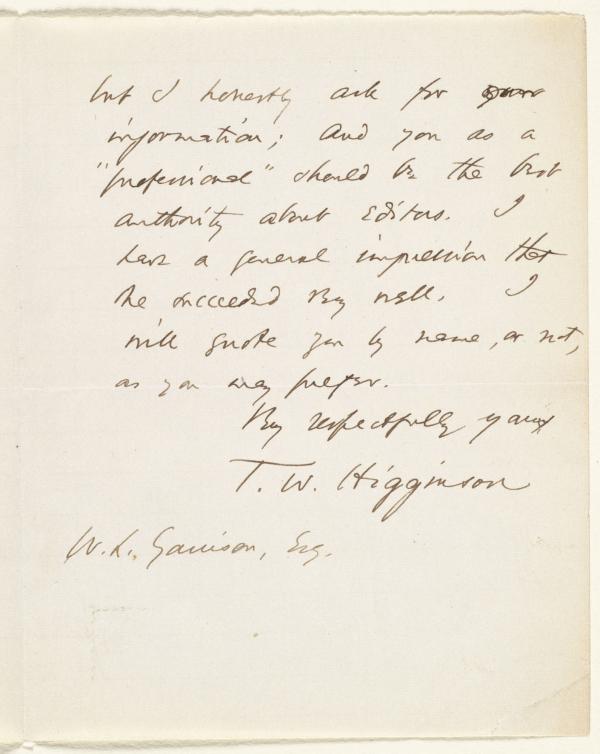 but I honestly ask for
information; and you as a
"professional" should be the best
authority about Editors. I
have a general impression that
he succeeded very well. I
will quote you by name, or not,
as you may prefer.
Very respectfully yours
T. W. Higginson
W. L. Garrison, Esq.